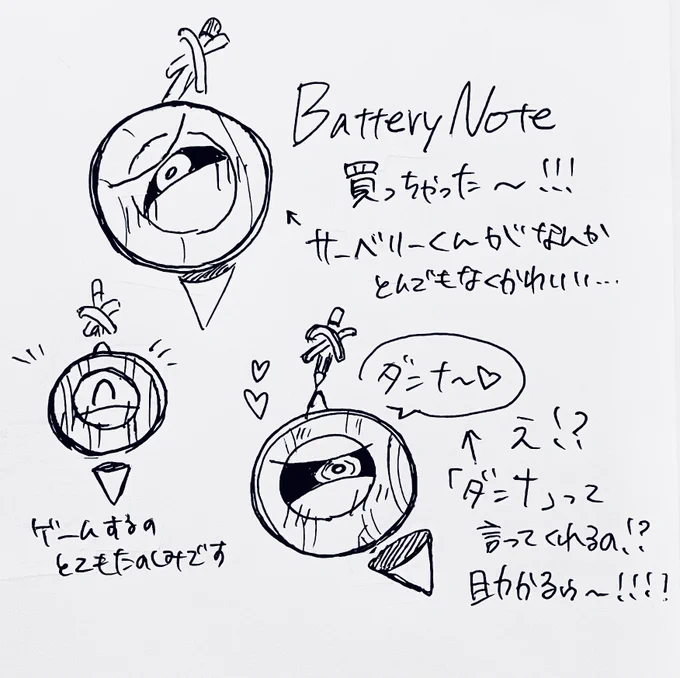 Battery Note
買っちゃった〜!!!
サーベリーくんがなんか
とんでもなくかわいい…
ダンナ〜♡
え!?
「ダンナ」って
言ってくれるの!?
助かるぅ〜!!!!
ゲームするの
とてもたのしみです